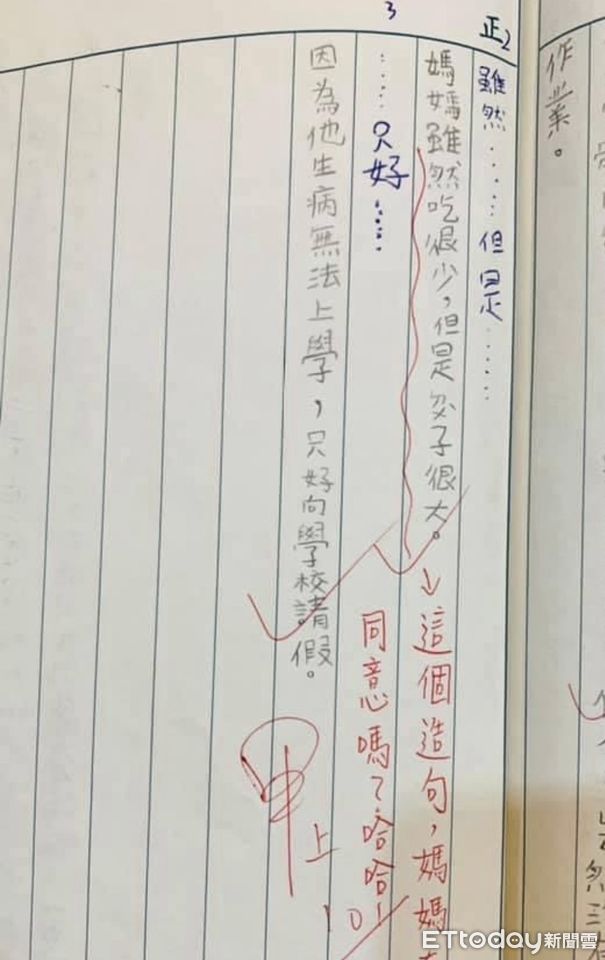 作業。
正2
雖然……但是……
媽媽雖然吃很少,但是子很大。
→這個造句,媽媽
3
……只好……
同意嗎?哈哈!
因為他生病無法上學,只好向學校請假。
甲上
ETtoday新聞雲